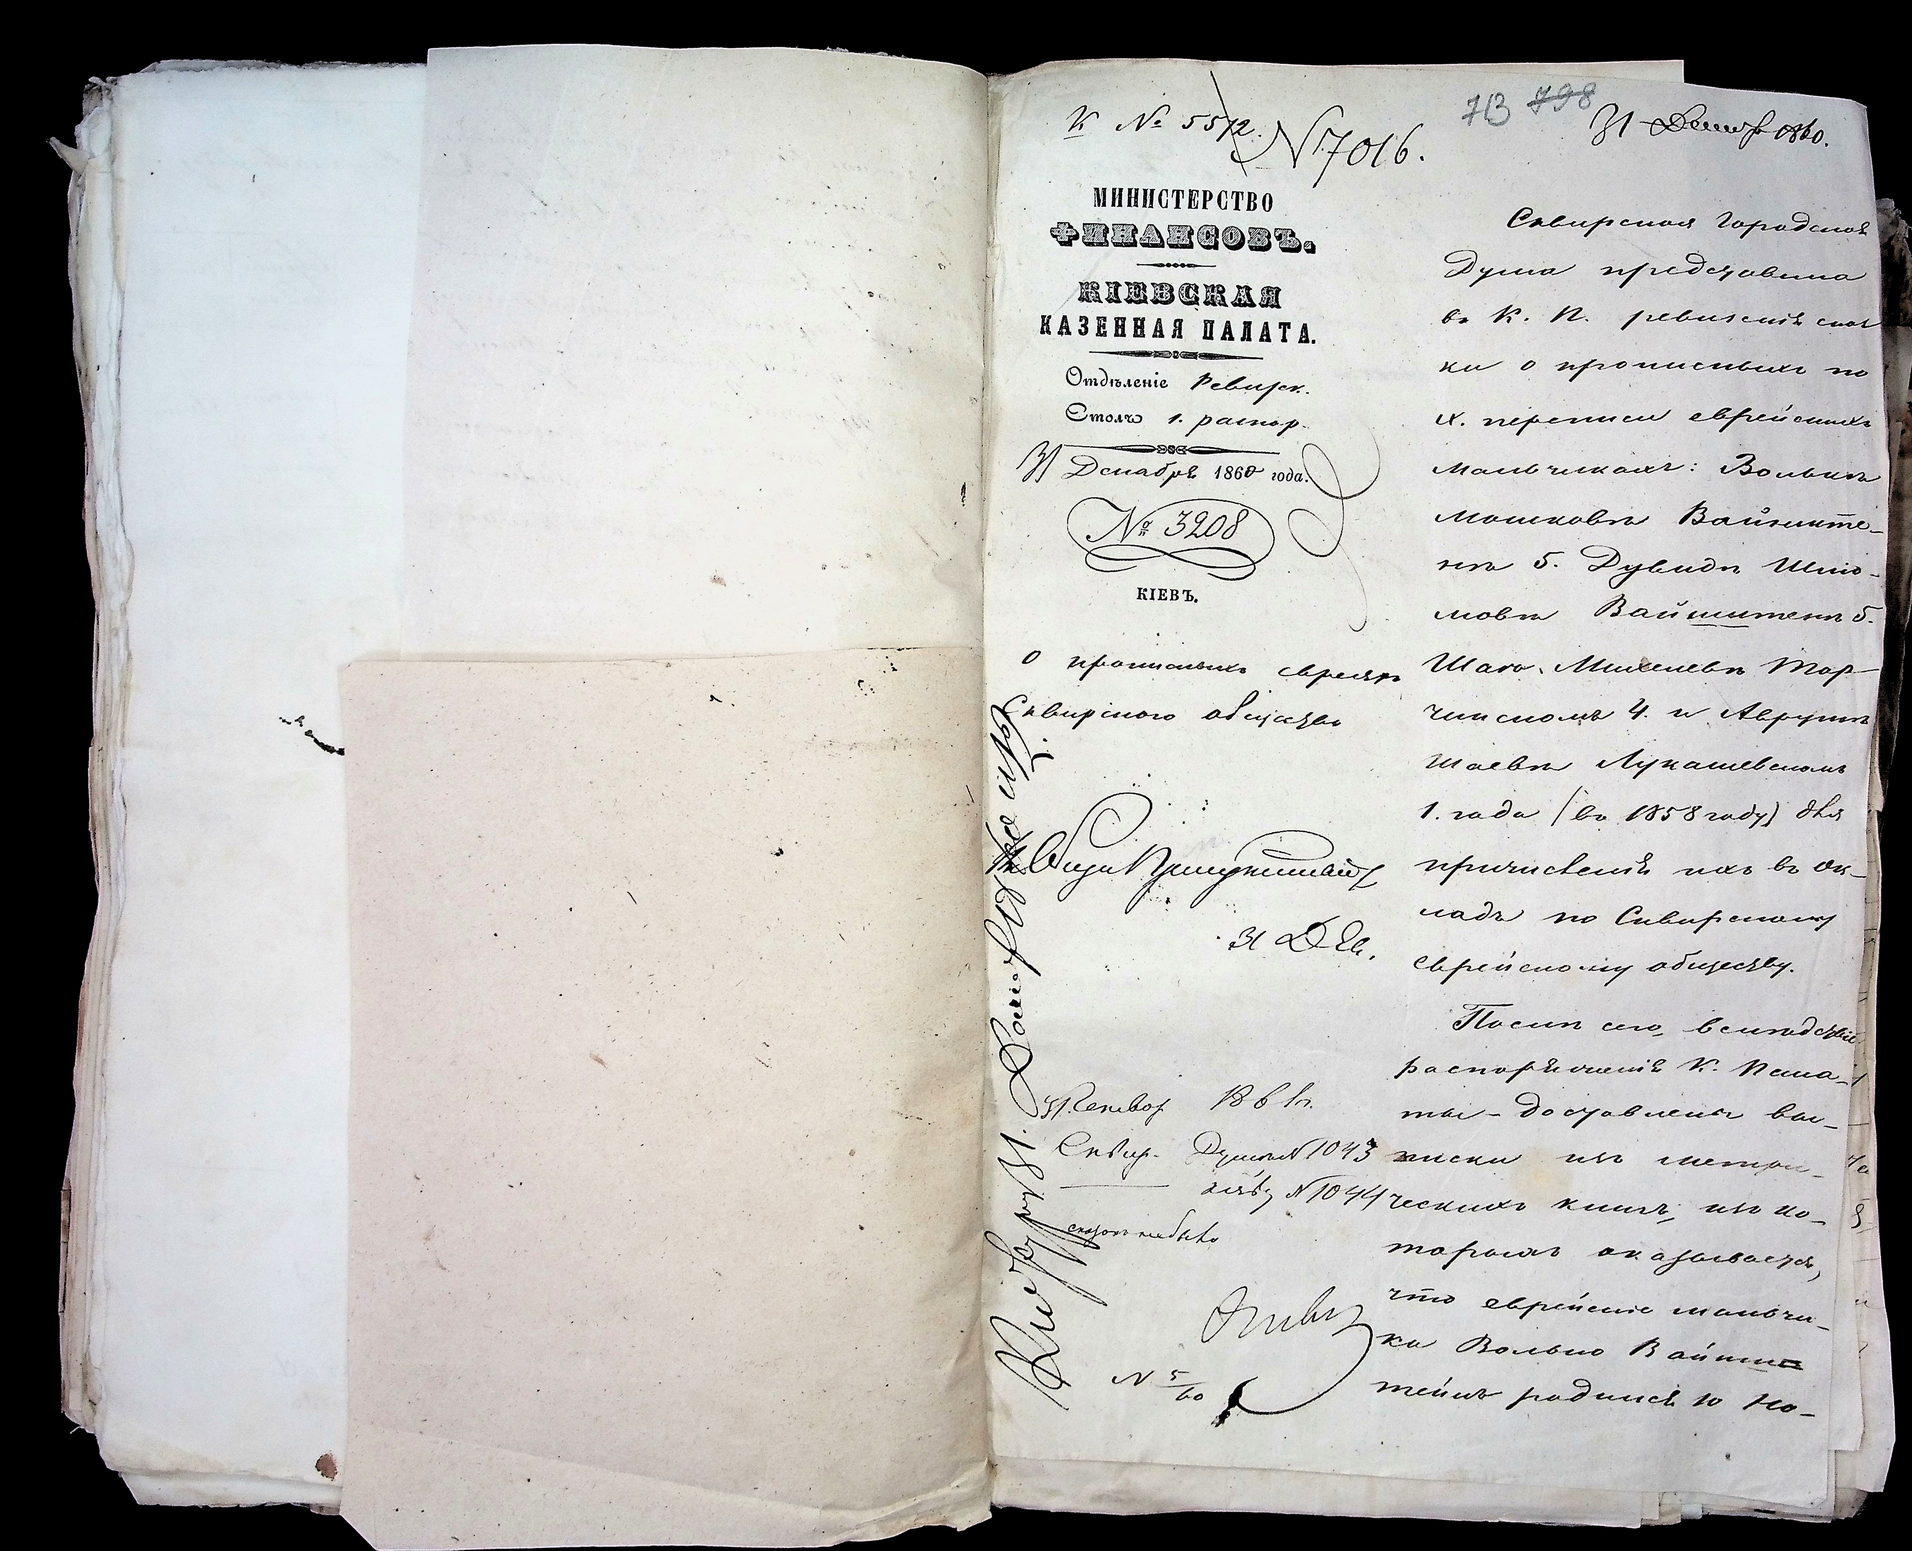 К № 5572.
№ 7016.
713 798
31 Декабр 1860.
МИНИСТЕРСТВО
ФИНАНСОВЪ.
КІЕВСКАЯ
КАЗЕННАЯ ПАЛАТА.
Отдѣленіе Ревизск.
Столъ 1. распор.
31 Декабря 1860 года.
№ 3208
КІЕВЪ.
о прописныхъ евреяхъ
Сквирского общества
31 Дек.
31 Генвар 1861.
Сквир. Думѣ № 1043
№ 1044
N 5/60
Сквирская Городская
Дума представила
въ К. П. ревизскія сказ
ки о прописныхъ по
X. переписи еврейскихъ
мальчикахъ: Волькѣ
Мошковѣ Вайнште-
нѣ 5. Дувидѣ Шлio-
мовѣ Вайнштенѣ 5.
Михелевѣ Тор-
чинскомъ 4. и Аврумѣ
Шаевѣ Лукашевскомъ
1. года (въ 1858 году) для
причисленія ихъ въ ок-
ладъ по Сквирскому
еврейскому обществу.
Послѣ сего, вслѣдствіе
распоряженія К. Пала-
ты - доставлены вы-
писки изъ метри-
ческихъ книгъ, изъ ко-
торыхъ оказывается,
что еврейскіе мальчи-
ки Волько Вайнш
тейнъ родился 10 Но-